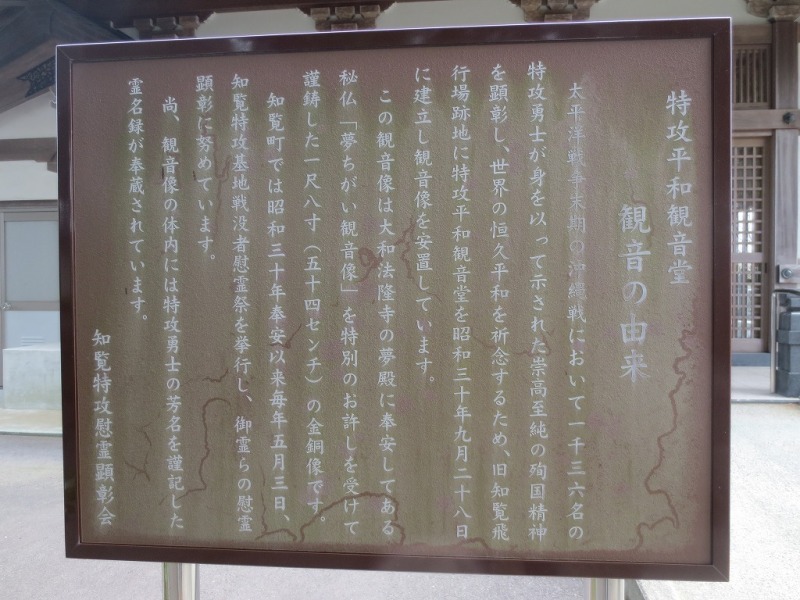 特攻平和観音堂
観音の由来
太平洋戦争末期の沖縄戦において一千三六名の
特攻勇士が身を以って示された崇高至純の殉国精神
を顕彰し、世界の恒久平和を祈念するため、旧知覧飛
行場跡地に特攻平和観音堂を昭和三十年九月二十八日
に建立し観音像を安置しています。
この観音像は大和法隆寺の夢殿に奉安してある
秘仏「夢ちがい観音像」を特別のお許しを受けて
謹鋳した一尺八寸(五十四センチ)の金銅像です。
知覧町では昭和三十年奉安以来毎年五月三日、
知覧特攻基地戦没者慰霊祭を挙行し、御霊らの慰霊
顕彰に努めています。
尚、観音像の体内には特攻勇士の芳名を謹記した
霊名録が奉蔵されています。
知覧特攻慰霊顕彰会